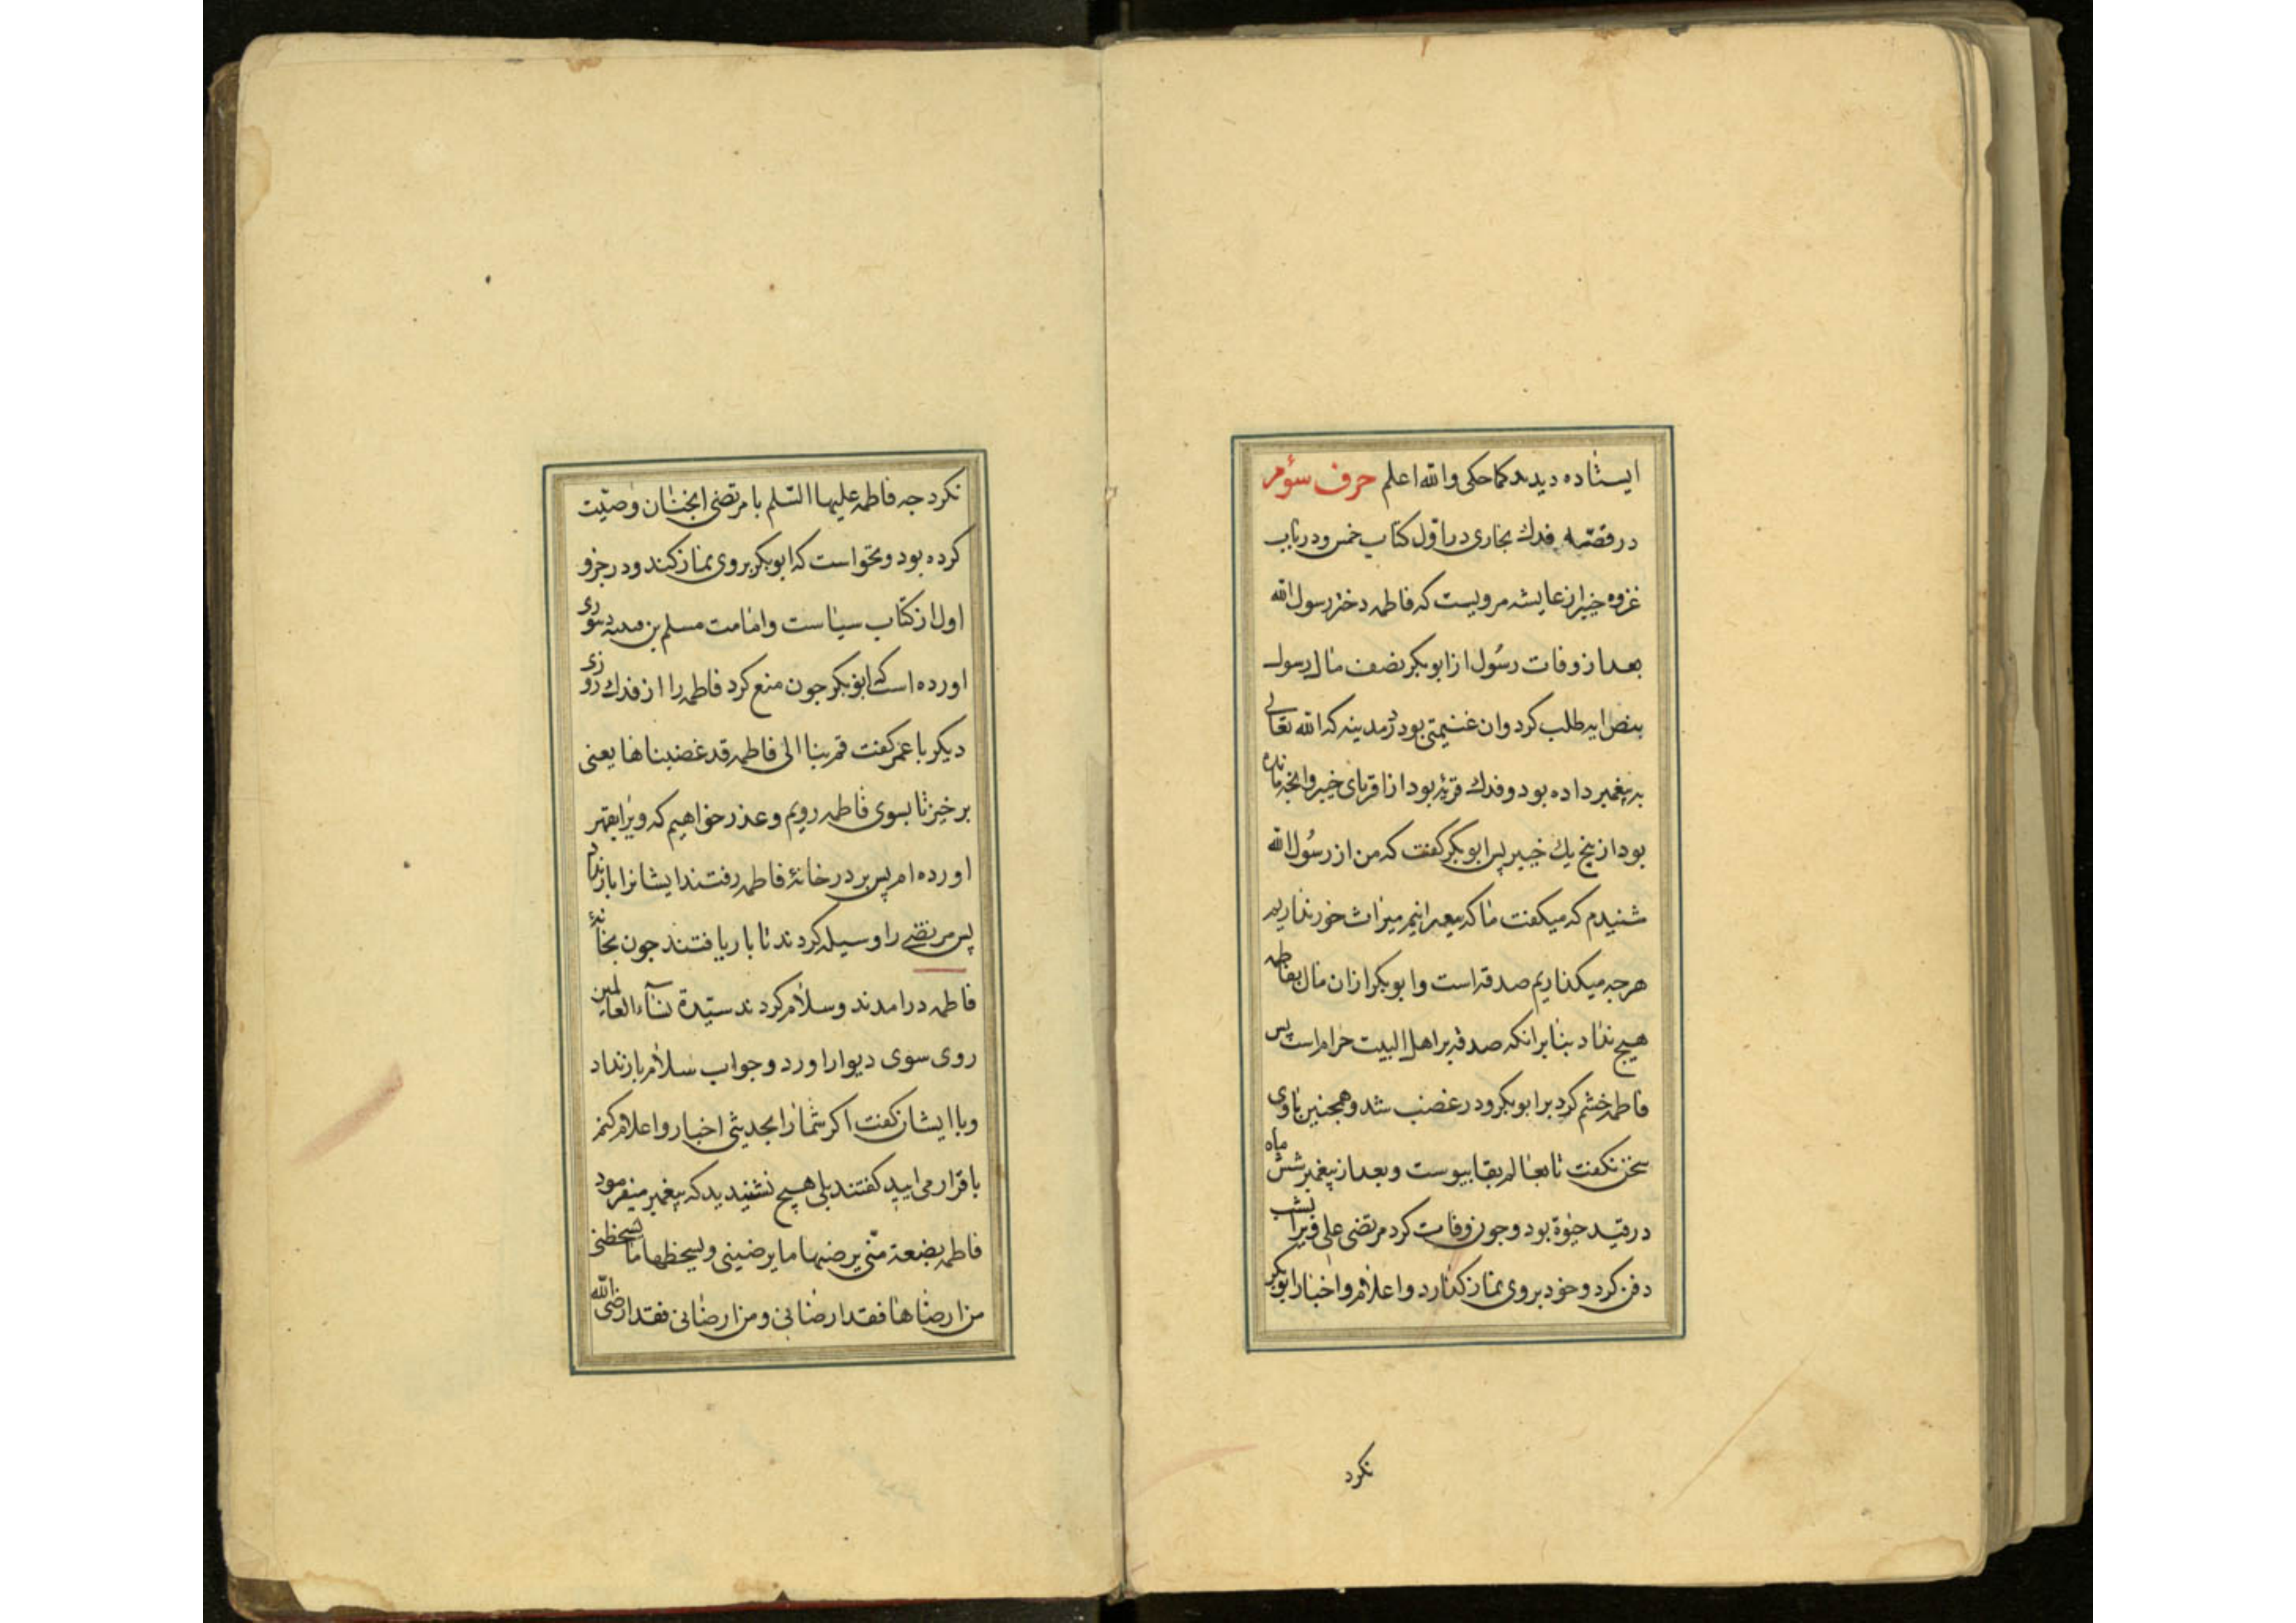 ایستاده دیدند کما حکی والله اعلم حرف سؤم
در قصّه فدك بخاری در اوّل کتاب خمس و در باب
غزوه خیبر از عایشه مرویست که فاطمه دختر رسول الله
بعد از وفات رسُول از ابوبکر نصف مال رسول
بنص ایه طلب کرد وان غنیمتی بود در مدینه که الله تعالی
به پیغمبر داده بود و فدك قریهٔ بود از اقربای خیبر وانجه مانده
بود از پنج یك خیبر پس ابوبکر کفت که من از رسُول الله
شنیدم که میکفت ما که پیغمبرانیم میراث خور نداریم
هرجه میکذاریم صدقه است وابوبکر ازان مال بفاطمه
هیچ نداد بنا برانکه صدقه بر اهل البیت حرام است پس
فاطمه خشم کرد بر ابوبکر و در غضب شد وهمجنین با وی
سخن نکفت تا بعالم بقا پیوست وبعد از پیغمبر شش ماه
در قید حیٰوة بود وجون وفات کرد مرتضی علی ویرا بشب
دفن کرد وخود بروی نماز کذارد واعلام واخبار ابوبکر
نکرد
نکرد جه فاطمه علیها السّلم با مرتضی انجنان وصیّت
کرده بود ونخواست که ابوبکر بروی نماز کند ودر جزو
اول از کتاب سیاست وامامت مسلم بن قتیبه دینوری
اورده است که ابوبکر جون منع کرد فاطمه را از فدك روزی
دیکر با عمر کفت قم بنا الی فاطمه قد غضبناها یعنی
برخیز تا بسوی فاطمه رویم وعذر خواهیم که ویرا بقهر
اورده ام پس بر در خانهٔ فاطمه رفتند ایشانرا بار نداد
پس مرتضی را وسیله کردند تا بار یافتند جون بخانهٔ
فاطمه درامدند وسلام کردند سیّدة نسآء العالمین
روی سوی دیوار اورد وجواب سلام باز نداد
وبا ایشان کفت اکر شمارا بحدیثی اخبار واعلام کنم
باقرار می ایید کفتند بلی هیچ نشنیدید که پیغمبر میفرمود
فاطمه بضعة منّی یرضیها ما یرضینی ویسخطها ما یسخطنی
من ارضاها فقد ارضانی ومن ارضانی فقد ارضی الله